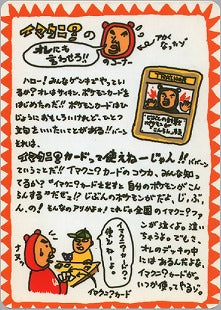 イマクニ?の
オレにも
言わせろ!!
のコーナー
アカくなったゾ
ハロー!みんなゲンキでやってい
るか?オレはサイキン、ポケモンカードを
はじめたのだ!!ポケモンカードはじ
つにおもしろいけれど、ひとつ
文句をいいたいことがある!!ババーン
それは、
イマクニ?カードって使えねーじゃん!!ババーン
ということだ!!イマクニ?のコウカ、みんな知っ
てるか?"イマクニ?カードを出すと自分のポケモンがこん
らんする"だぜ。じ?じぶんのポケモンがだよ、じ、ぶ、
ん、の!そんなのアリかよ!!これじゃ全国のイマクニ?ファ
ンが泣くよ。泣い
ちゃうよ。でもさ、
オレのデッキの中
にはあるんだよな、
イマクニ?カードが
いつか使ってやるゾ。
イマクニ?カードの
使えねーよ。
イマクニ?カード